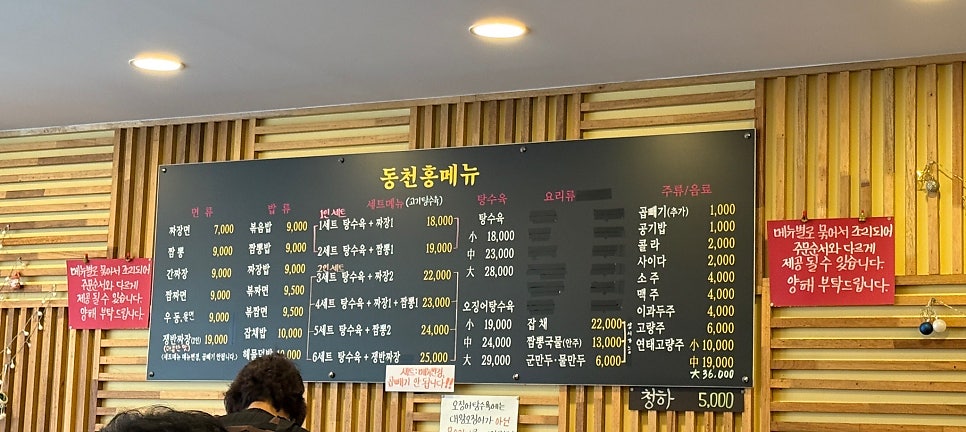 동천홍메뉴
면 류
짜장면 7,000
짬 뽕 9,000
간짜장 9,000
짬짜면 9,000
우동, 울면 9,000
쟁반짜장(2인) 19,000
밥 류
볶음밥 9,000
짬뽕밥 9,000
짜장밥 9,000
볶짜면 9,500
볶짬면 9,500
잡채밥 10,000
해물덮밥
세트메뉴 (고기탕수육)
1인 세트
1세트 탕수육 + 짜장1 18,000
2세트 탕수육 + 짬뽕1 19,000
2인 세트
3세트 탕수육 + 짜장2 22,000
4세트 탕수육 + 짜장1 + 짬뽕1 23,000
5세트 탕수육 + 짬뽕2 24,000
6세트 탕수육 + 쟁반짜장 25,000
탕수육
탕수육
小 18,000
中 23,000
大 28,000
오징어탕수육
小 19,000
中 24,000
大 29,000
요리류
잡 채 22,000
짬뽕국물(안주) 13,000
군만두·물만두 6,000
주류/음료
곱빼기(추가) 1,000
공기밥 1,000
콜 라 2,000
사이다 2,000
소 주 4,000
맥 주 4,000
이과두주 4,000
고량주 6,000
연태고량주 小 10,000
中 19,000
大 36,000
청하 5,000
메뉴별로 묶어서 조리되어
주문순서와 다르게
제공 될 수 있습니다.
양해 부탁드립니다
메뉴별로 묶어서 조리되어
주문순서와 다르게
제공 될 수 있습니다.
양해 부탁드립니다
세트: 메뉴변경,
곱빼기 안 됩니다!!
오징어탕수육에는
대왕오징어가 아닌